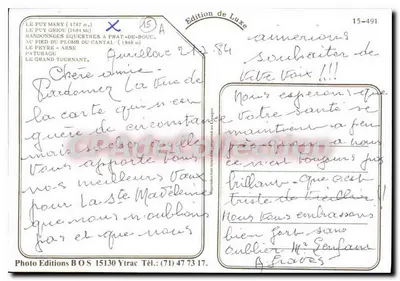 LE PUY MARY (1787 m).
LE PUY GRIOU (1694 m)
RANDONNÉES ÉQUESTRES A PRAT-DE-BOUC.
AU PIED DU PLOMB DU CANTAL (1858 m)
LE PEYRE - ARSE
PATURAGE
LE GRAND TOURNANT.
X
15 A
Edition de Luxe
15-491
Aurillac 21.7.84
Chère amie
Pardonnez la vue de
la carte qui n'est
guère de circonstance
mais
vous apporte
nos meilleurs vœux
pour la Ste Madeleine
que nous n'oublions
pas et que nous
aimerions
souhaiter de
vive voix !!!
Nous espérons que
votre santé se
maintient à peu
à nous
ce n'est toujours pas
brillant - que c'est
triste de vieillir !!
Nous vous embrassons
bien fort sans
oublier
Photo Editions B O S 15130 Ytrac Tél.: (71) 47 73 17.